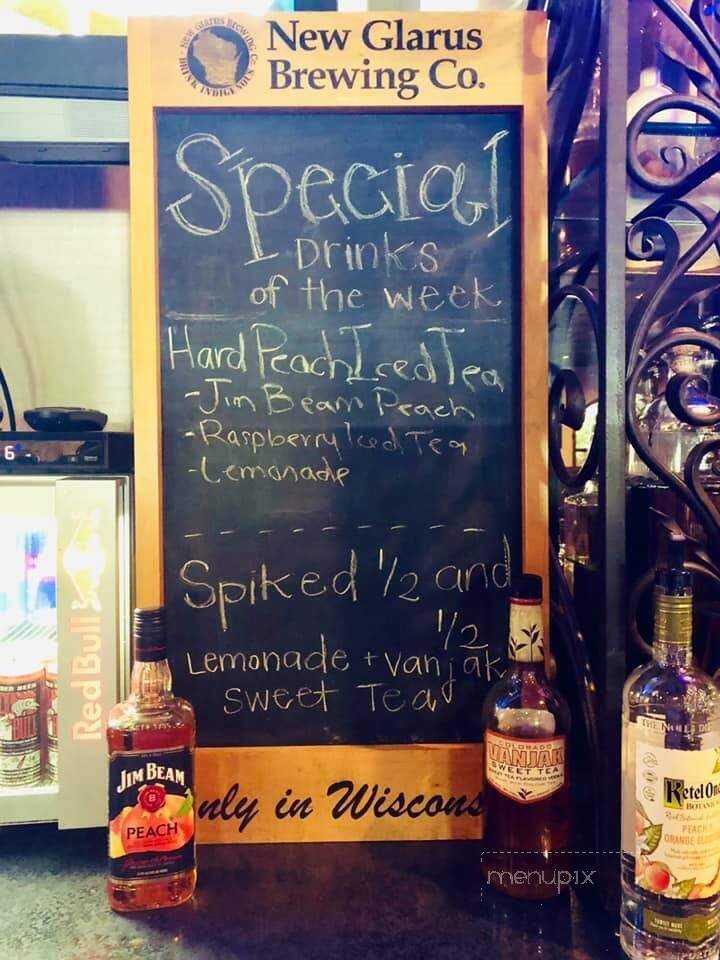 New Glarus
Brewing Co.
DRINK INDIGENOUS
Special
Drinks
of the week
Hard Peach Iced Tea
- Jim Beam Peach
- Raspberry Iced Tea
- Lemonade
Spiked 1/2 and
1/2
Lemonade + vanjak
sweet Tea
nly in Wiscons
Red Bull
JIM BEAM
B
PEACH
COLORADO
VANJAK
SWEET TEA
Ketel One
BOTANI
PEACH &
ORANGE BLO
menupix
6